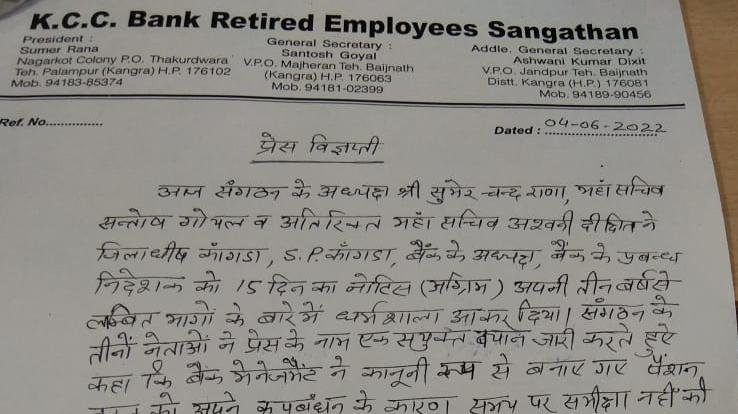 K.C.C. Bank Retired Employees Sangathan
President :
Sumer Rana
Nagarkot Colony P.O. Thakurdwara
Teh. Palampur (Kangra) H.P. 176102
Mob. 94183-85374
General Secretary :
Santosh Goyal
V.P.O. Majheran Teh. Baijnath
(Kangra) H.P. 176063
Mob. 94181-02399
Addle. General Secretary :
Ashwani Kumar Dixit
V.P.O. Jandpur Teh. Baijnath
Distt. Kangra (H.P.) 176081
Mob. 94189-90456
Ref. No..............
Dated : 04-06-2022
प्रेस विज्ञप्ती
आज संगठन के अध्यक्ष श्री सुमेर चन्द राणा, महां सचिव
सन्तोष गोयल व अतिरिक्त महां सचिव अश्वनी दीक्षित ने
जिलाधीष कांगडा, S.P. काँगडा, बैंक के अध्यक्ष, बैंक के प्रबन्ध
निदेशक को 15 दिन का नोटिस (अग्रिम) अपनी तीन वर्ष से
लम्बित मागों के बारे में धर्मशाला आकर दिया। संगठन के
तीनों नेताओं ने प्रेस के नाम एक सयुक्त बयान जारी करते हुऐ
कहा कि बैंक मेनेजमैंट ने कानूनी रूप से बनाए गए पैंशन
को अपने कुप्रबंधन के कारण समय पर समीक्षा नहीं की